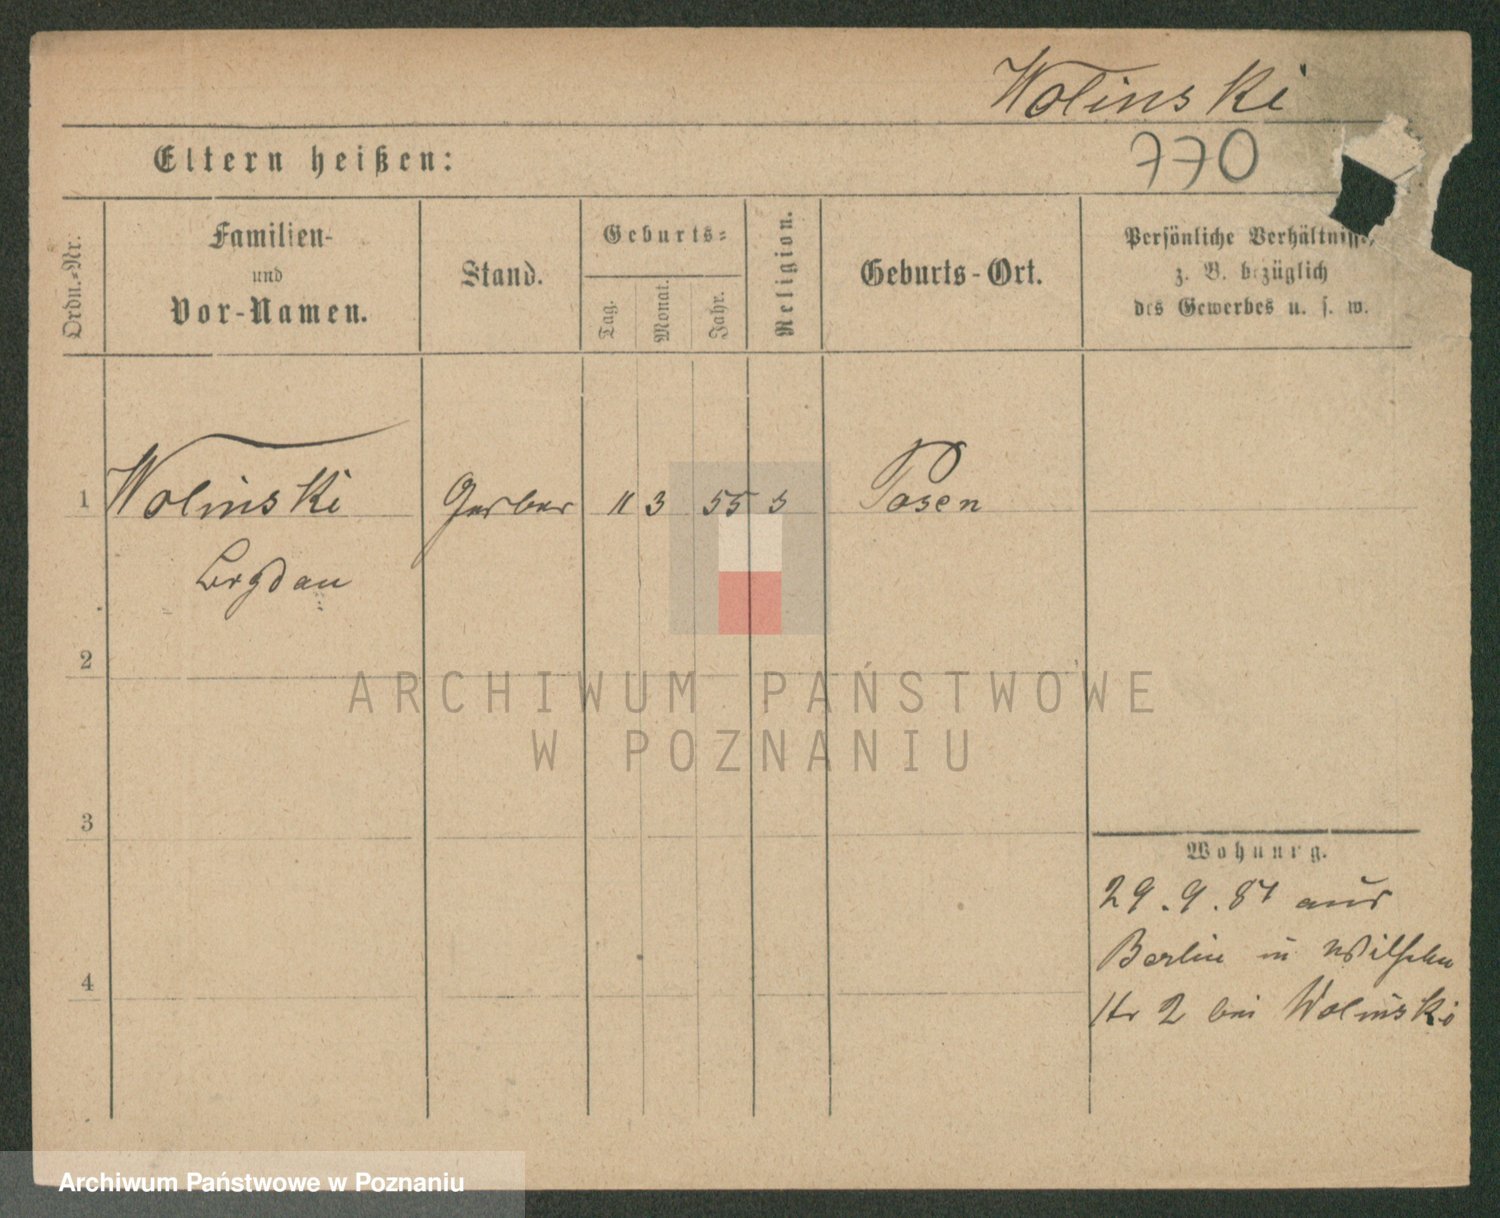 Wolinski
Eltern heißen:
770
Ordn.-Nr.
Familien-
und
Vor-Namen.
Stand.
Geburts-
Tag.
Monat.
Jahr.
Religion.
Geburts-Ort.
Persönliche Verhältnisse,
z. B. bezüglich
des Gewerbes u. s. w.
1 Wolinski Gerber 11 3 55 Posen
2
ARCHIWUM PAŃSTWOWE
W POZNANIU
3
Wohnung.
29.9.87 aus
Berlin in
4
Str 2 bei Wolinski
Archiwum Państwowe w Poznaniu